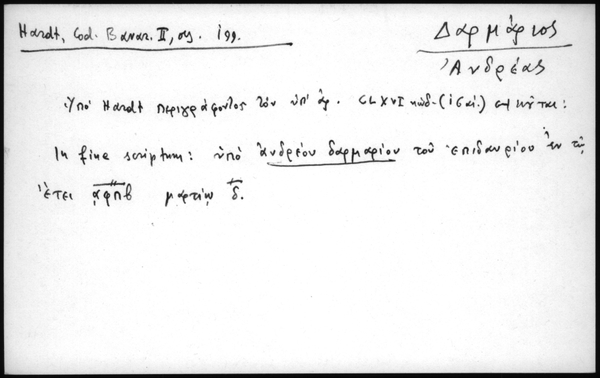 Hardt, Cod. Bavar. II, σ. 199.
Δαρμάριος
Ἀνδρέας
Ὑπὸ Hardt περιγράφοντος τὸν ὑπ' ἀρ. CLXVI κώδ. (ις αἰ.)
In fine scriptum: ὑπὸ ἀνδρέου δαρμαρίου τοῦ ἐπιδαυρίου ἐν τῷ
ἔτει αφπβ μαρτίῳ δ.